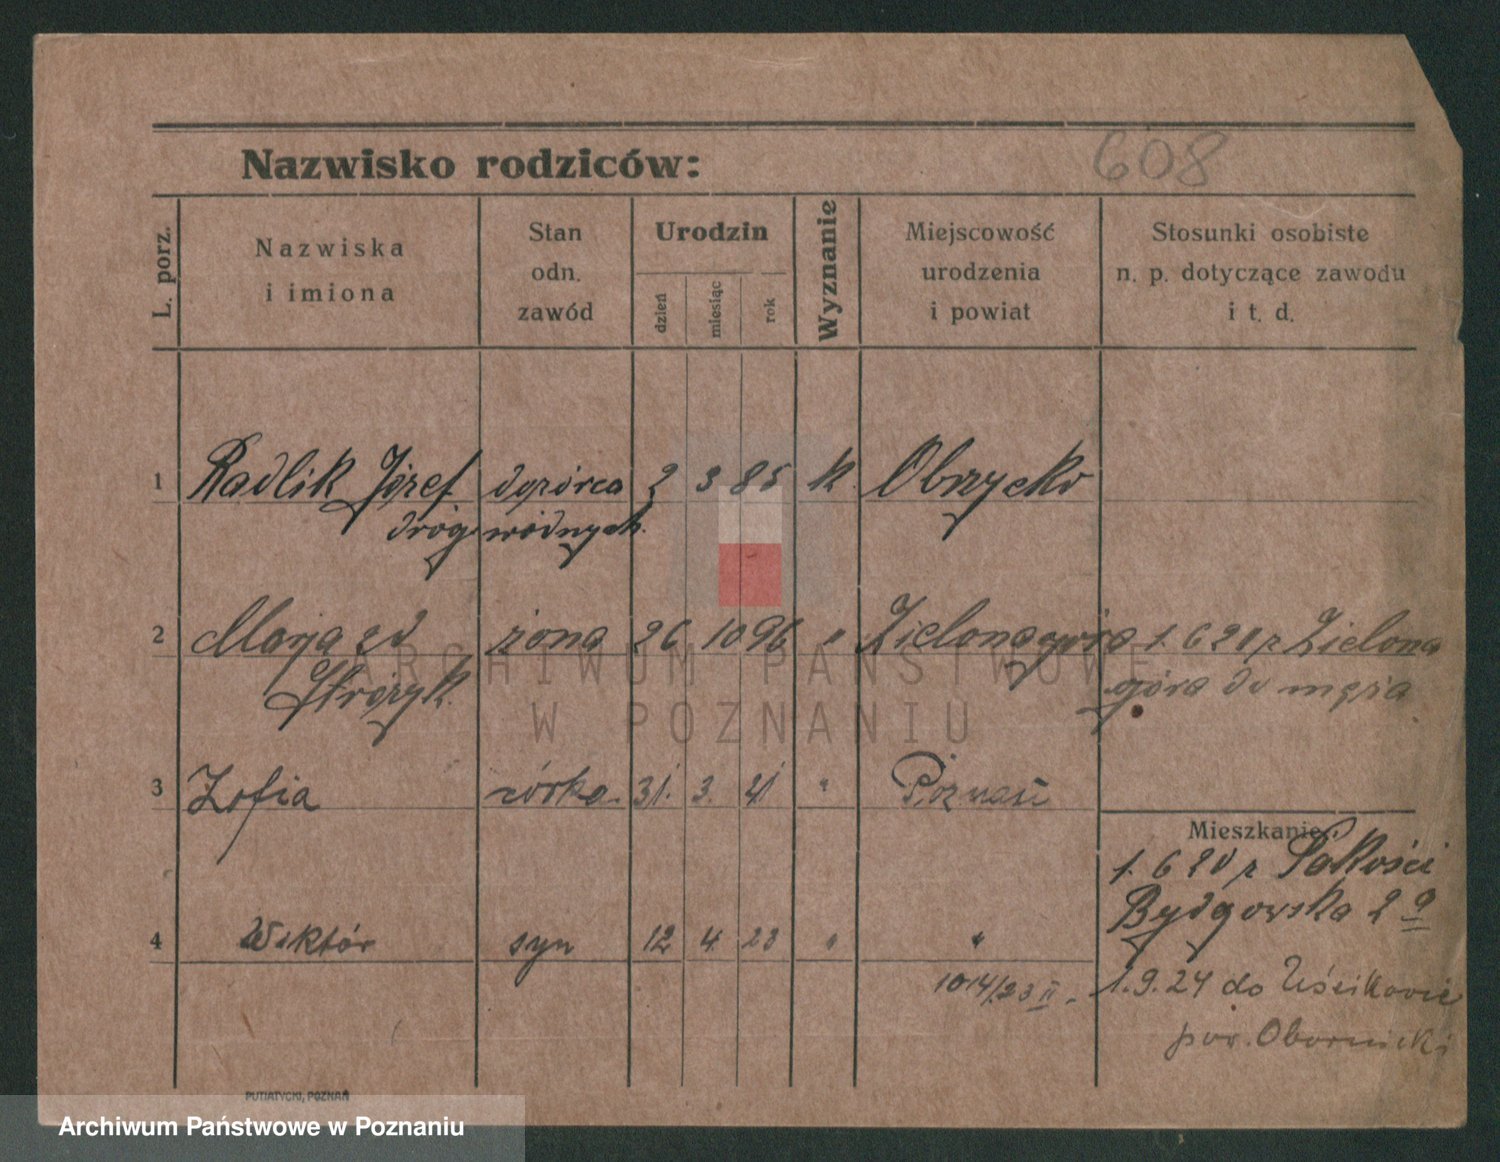 608
Nazwisko rodziców:
L. porz.
Nazwiska
i imiona
Stan
odn.
zawód
Urodzin
dzień
miesiąc
rok
Wyznanie
Miejscowość
urodzenia
i powiat
Stosunki osobiste
n. p. dotyczące zawodu
i t. d.
1 Radlik Józef dozórca 2 3 85 k. Obrzycko
dróg wodnych.
2 Marja zd żona 26 10 96 " Zielonagóra 1. 6 20 r Zielona
Stróżyk. góra do męża
ARCHIWUM PAŃSTWOWE
W POZNANIU
3 Zofia córka. 31. 3. 21 " Poznań
Mieszkanie:
1. 6 20 r
Bydgowska 2 a
4 Wiktór syn 12 4. 23 " "
1014/23 II. 1.9.24 do
pow. Obornicki
PUTIATYCKI, POZNAŃ
Archiwum Państwowe w Poznaniu